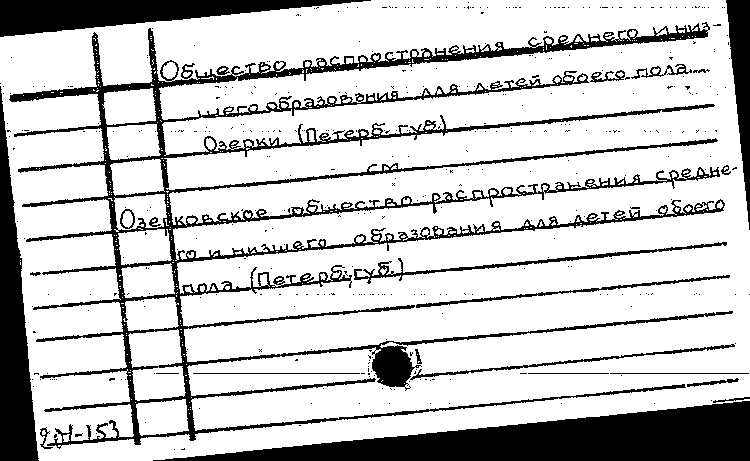 Общество распространения среднего и низ-
шего образования для детей обоего пола.
Озерки. (Петерб. губ.)
см
Озерковское общество распространения средне-
го и низшего образования для детей обоего
пола. (Петерб. губ.)